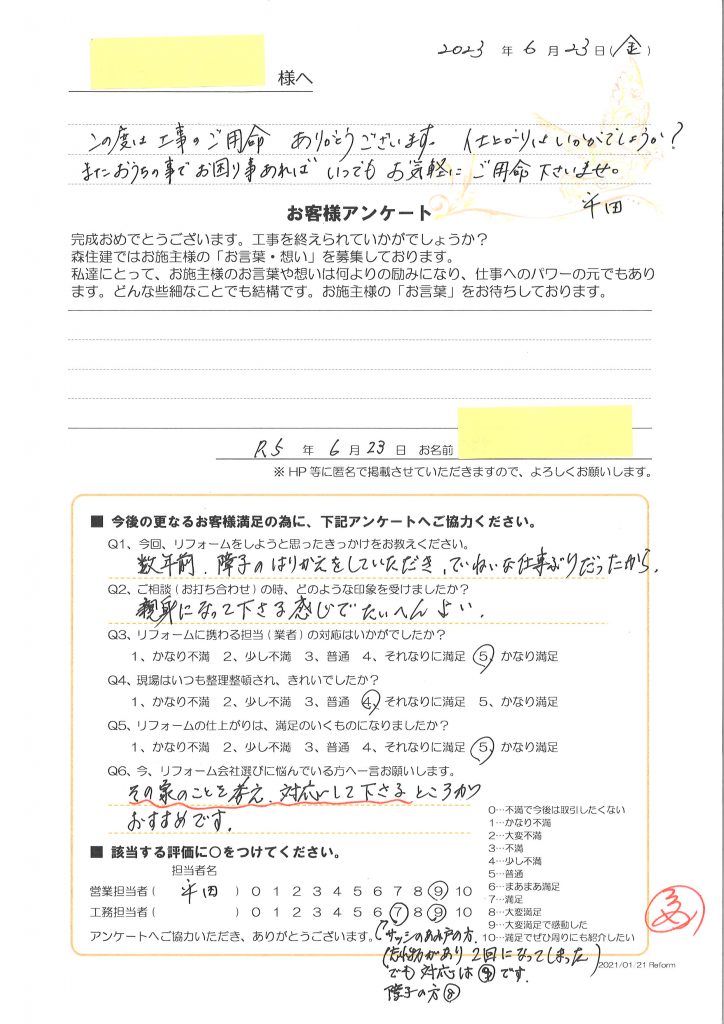 2023 年 6 月 23 日(金)
様へ
この度は 工事のご用命 ありがとうございます。 仕上がりはいかがでしょうか?
またおうちの事でお困り事あれば いつでも お気軽に ご用命 下さいませ。
平田
お客様アンケート
完成おめでとうございます。工事を終えられていかがでしょうか?
森住建ではお施主様の「お言葉・想い」を募集しております。
私達にとって、お施主様のお言葉や想いは何よりの励みになり、仕事へのパワーの元でもあり
ます。どんな些細なことでも結構です。お施主様の「お言葉」をお待ちしております。
R5 年 6 月 23 日 お名前
※HP等に匿名で掲載させていただきますので、よろしくお願いします。
■ 今後の更なるお客様満足の為に、下記アンケートへご協力ください。
Q1、今回、リフォームをしようと思ったきっかけをお教えください。
数年前、障子のはりかえをしていただき、ていねいな仕事ぶりだったから。
Q2、ご相談(お打ち合わせ)の時、どのような印象を受けましたか?
親身になって下さる感じでたいへんよい。
Q3、リフォームに携わる担当(業者)の対応はいかがでしたか?
1、かなり不満 2、少し不満 3、普通 4、それなりに満足 5、かなり満足
Q4、現場はいつも整理整頓され、きれいでしたか?
1、かなり不満 2、少し不満 3、普通 4、それなりに満足 5、かなり満足
Q5、リフォームの仕上がりは、満足のいくものになりましたか?
1、かなり不満 2、少し不満 3、普通 4、それなりに満足 5、かなり満足
Q6、今、リフォーム会社選びに悩んでいる方へ一言お願いします。
その家のことを考え、対応して下さるところが
おすすめです。
0…不満で今後は取引したくない
1…かなり不満
2…大変不満
3…不満
4…少し不満
5…普通
6…まあまあ満足
7…満足
8…大変満足
9…大変満足で感動した
10…満足でぜひ周りにも紹介したい
■ 該当する評価に○をつけてください。
担当者名
営業担当者( 平田 ) 0 1 2 3 4 5 6 7 8 9 10
工務担当者( ) 0 1 2 3 4 5 6 7 8 9 10
アンケートへご協力いただき、ありがとうございます。
サッシのあみ戸の方、
があり 2回になってしまった)
でも 対応は ⑨ です。
障子の方 ⑧
2021/01/21 Reform